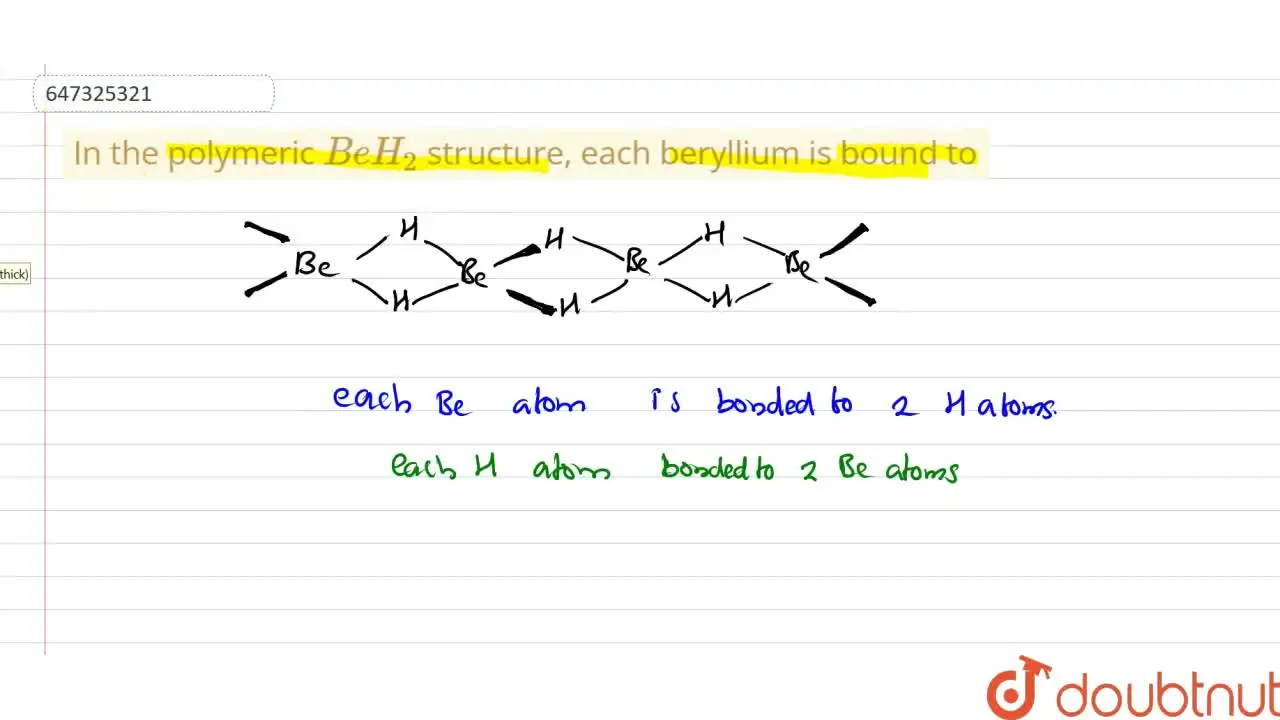 647325321
In the polymeric BeH₂ structure, each beryllium is bound to
H H H
Be Be Be Be
H H H
thick)
each Be atom is bonded to 2 H atoms.
each H atom bonded to 2 Be atoms
doubtnut